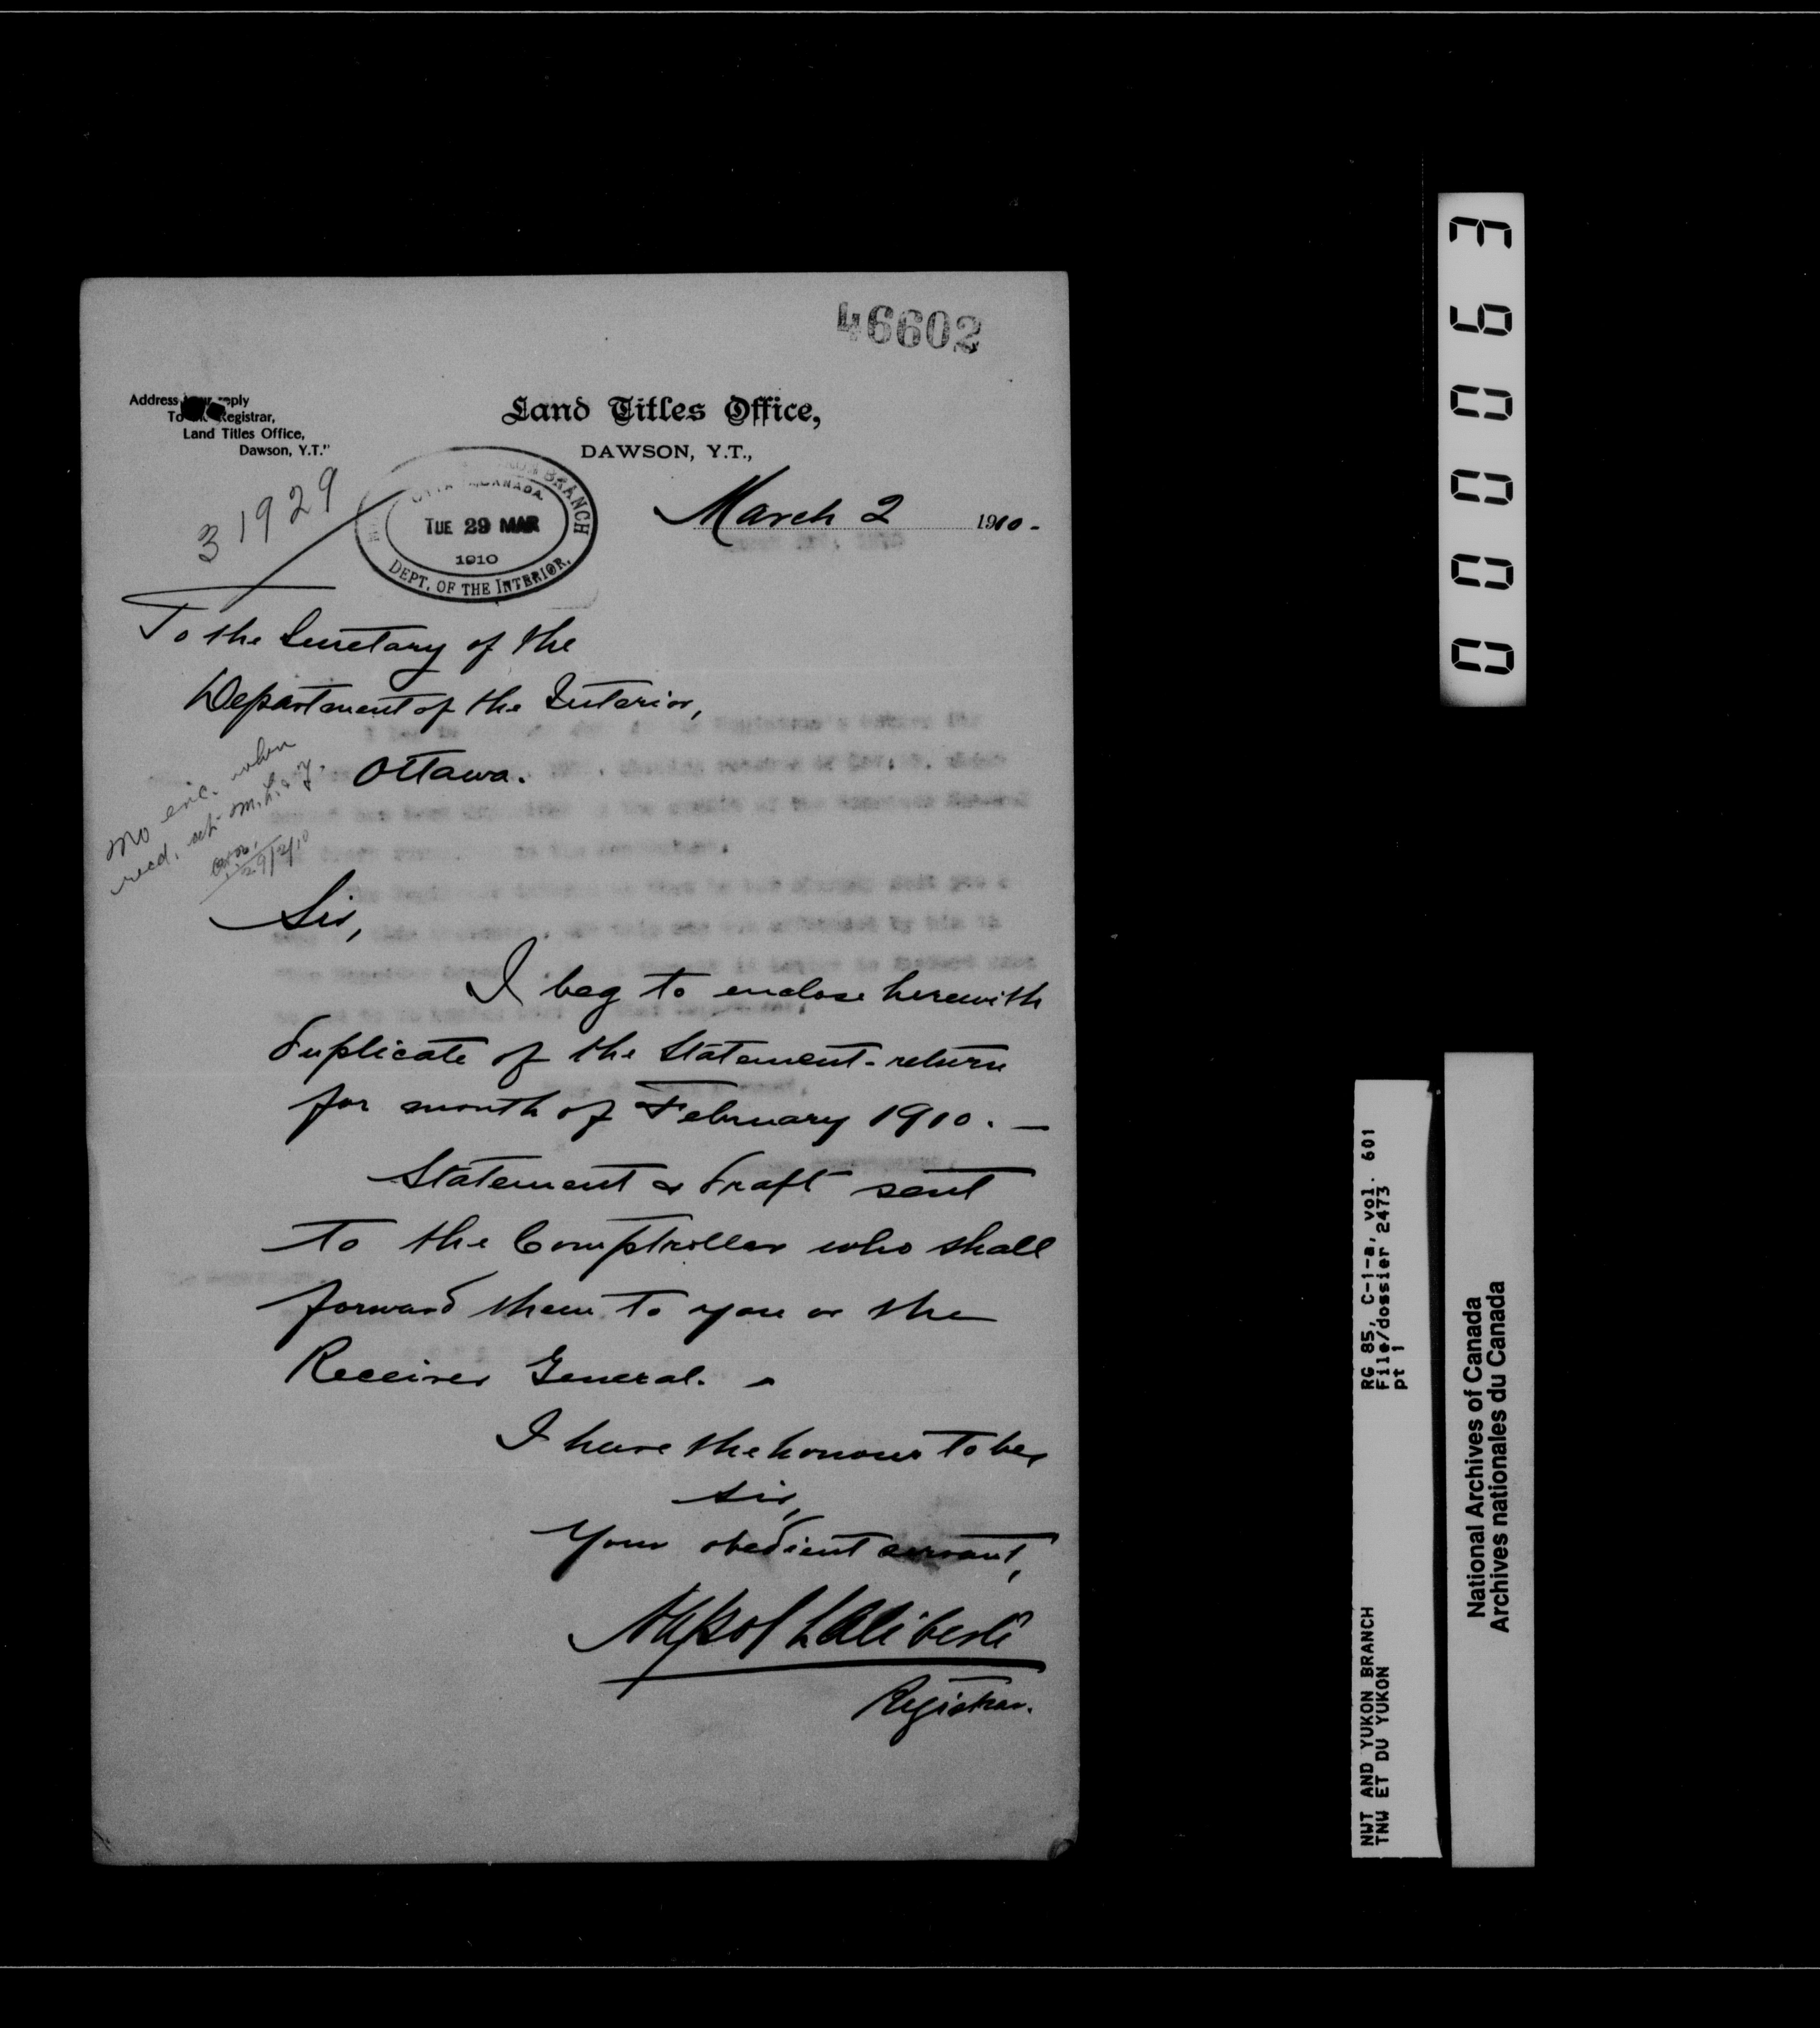 46602
Address your reply
To the Registrar,
Land Titles Office,
Dawson, Y.T."
Land Titles Office,
DAWSON, Y.T.,
31929
BRANCH
CANADA
TUE 29 MAR
1910
DEPT. OF THE INTERIOR.
March 2 1910-
To the Secretary of the
Department of the Interior,
Ottawa.
no enc. when
recd. at M. L. & Y.
29/3/10
Sir,
I beg to enclose herewith
duplicate of the Statement-return
for month of February 1910. —
Statement & draft sent
to the Comptroller who shall
forward them to you or the
Receiver General. -
I have the honour to be,
Sir,
Your obedient servant,
Napol Laliberté
Registrar.
000063
RG 85, C-1-a, vol. 601
File/dossier 2473
pt 1
NWT AND YUKON BRANCH
TNW ET DU YUKON
National Archives of Canada
Archives nationales du Canada